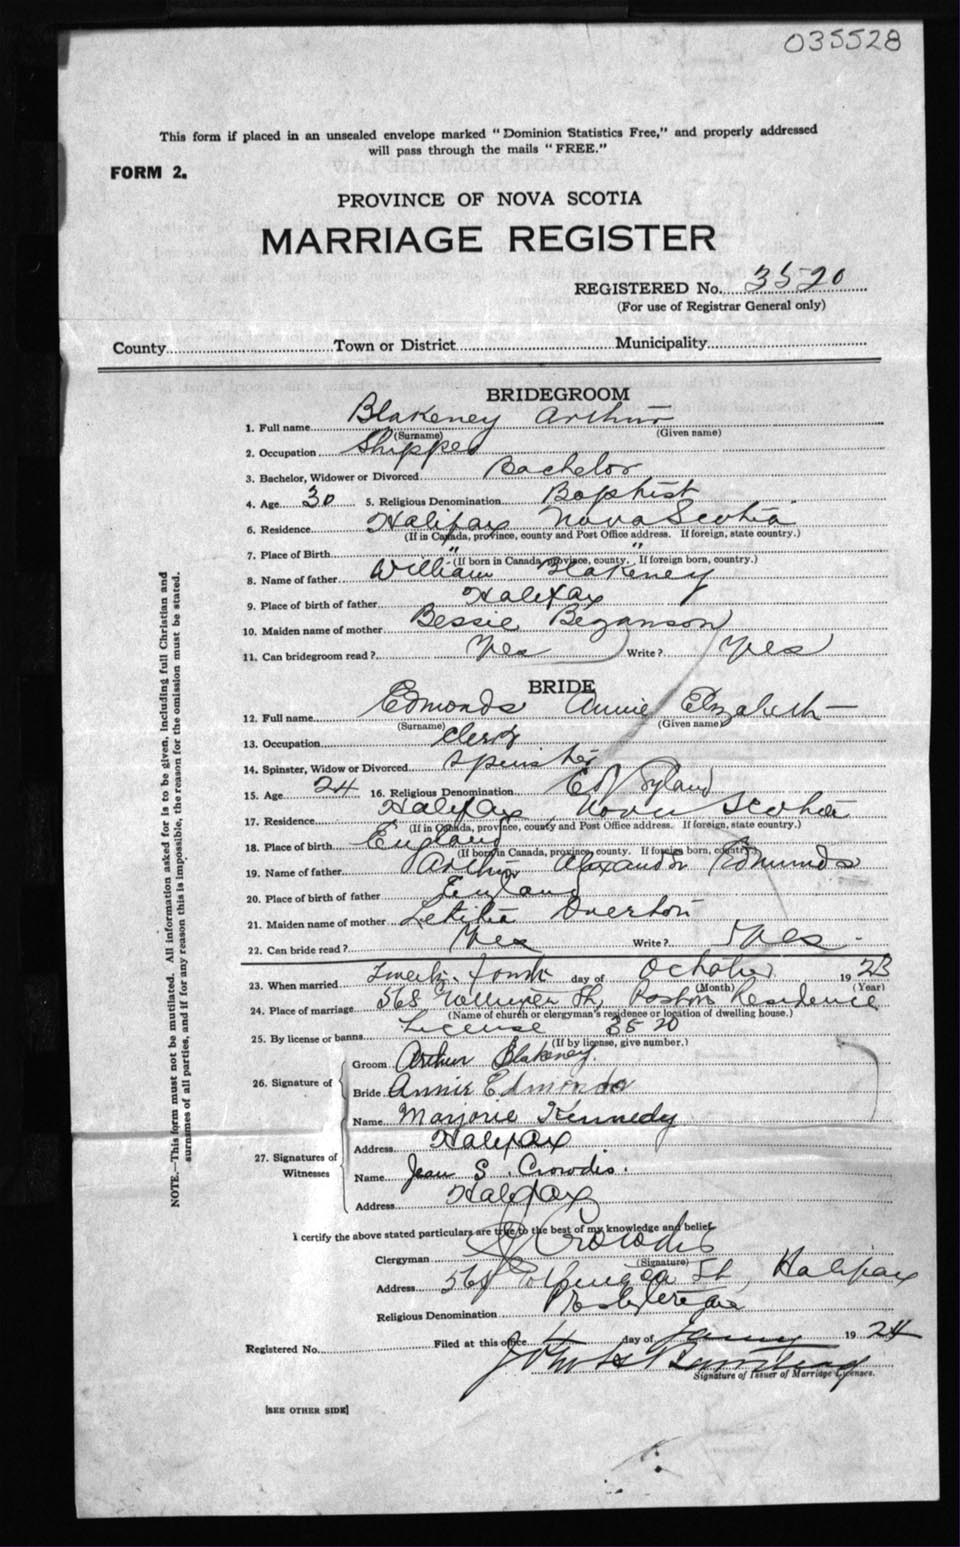 035528
This form if placed in an unsealed envelope marked "Dominion Statistics Free," and properly addressed
will pass through the mails "FREE."
FORM 2.
PROVINCE OF NOVA SCOTIA
MARRIAGE REGISTER
REGISTERED No. 3520
(For use of Registrar General only)
County Town or District Municipality
BRIDEGROOM
1. Full name Blakeney Arthur
(Surname) (Given name)
2. Occupation Shipper
3. Bachelor, Widower or Divorced Bachelor
4. Age 30 5. Religious Denomination Baptist
6. Residence Halifax Nova Scotia
(If in Canada, province, county and Post Office address. If foreign, state country.)
7. Place of Birth " "
(If born in Canada, province, county. If foreign born, country.)
8. Name of father William Blakeney
9. Place of birth of father Halifax
10. Maiden name of mother Bessie Beganson
11. Can bridegroom read? Yes Write? Yes
BRIDE
12. Full name Edmonds Annie Elizabeth
(Surname) (Given name)
13. Occupation Clerk
14. Spinster, Widow or Divorced Spinster
15. Age 24 16. Religious Denomination
17. Residence Halifax, Nova Scotia
(If in Canada, province, county and Post Office address. If foreign, state country.)
18. Place of birth England
(If born in Canada, province county. If foreign born, country.)
19. Name of father Arthur Alaxandor Edmunds
20. Place of birth of father England
21. Maiden name of mother Letitia Overton
22. Can bride read? Yes Write? Yes
23. When married day of October 1923
(Month) (Year)
24. Place of marriage 568 St, Residence
(Name of church or clergyman's residence or location of dwelling house.)
25. By license or banns License 3520
(If by license, give number.)
26. Signature of
Groom Arthur Blakeney.
Bride Annie Edmonds
27. Signatures of Witnesses
Name Marjorie Kennedy
Address Halifax
Name Jean S. Crowdis.
Address Halifax
I certify the above stated particulars are true to the best of my knowledge and belief.
Clergyman Crowdis
(Signature)
Address 568 St, Halifax
Religious Denomination Presbyterian
Registered No. Filed at this office 4 day of 1924
Signature of Issuer of Marriage Licenses.
[SEE OTHER SIDE]
NOTE.—This form must not be mutilated. All information asked for is to be given, including full Christian and
surnames of all parties, and if for any reason this is impossible, the reason for the omission must be stated.